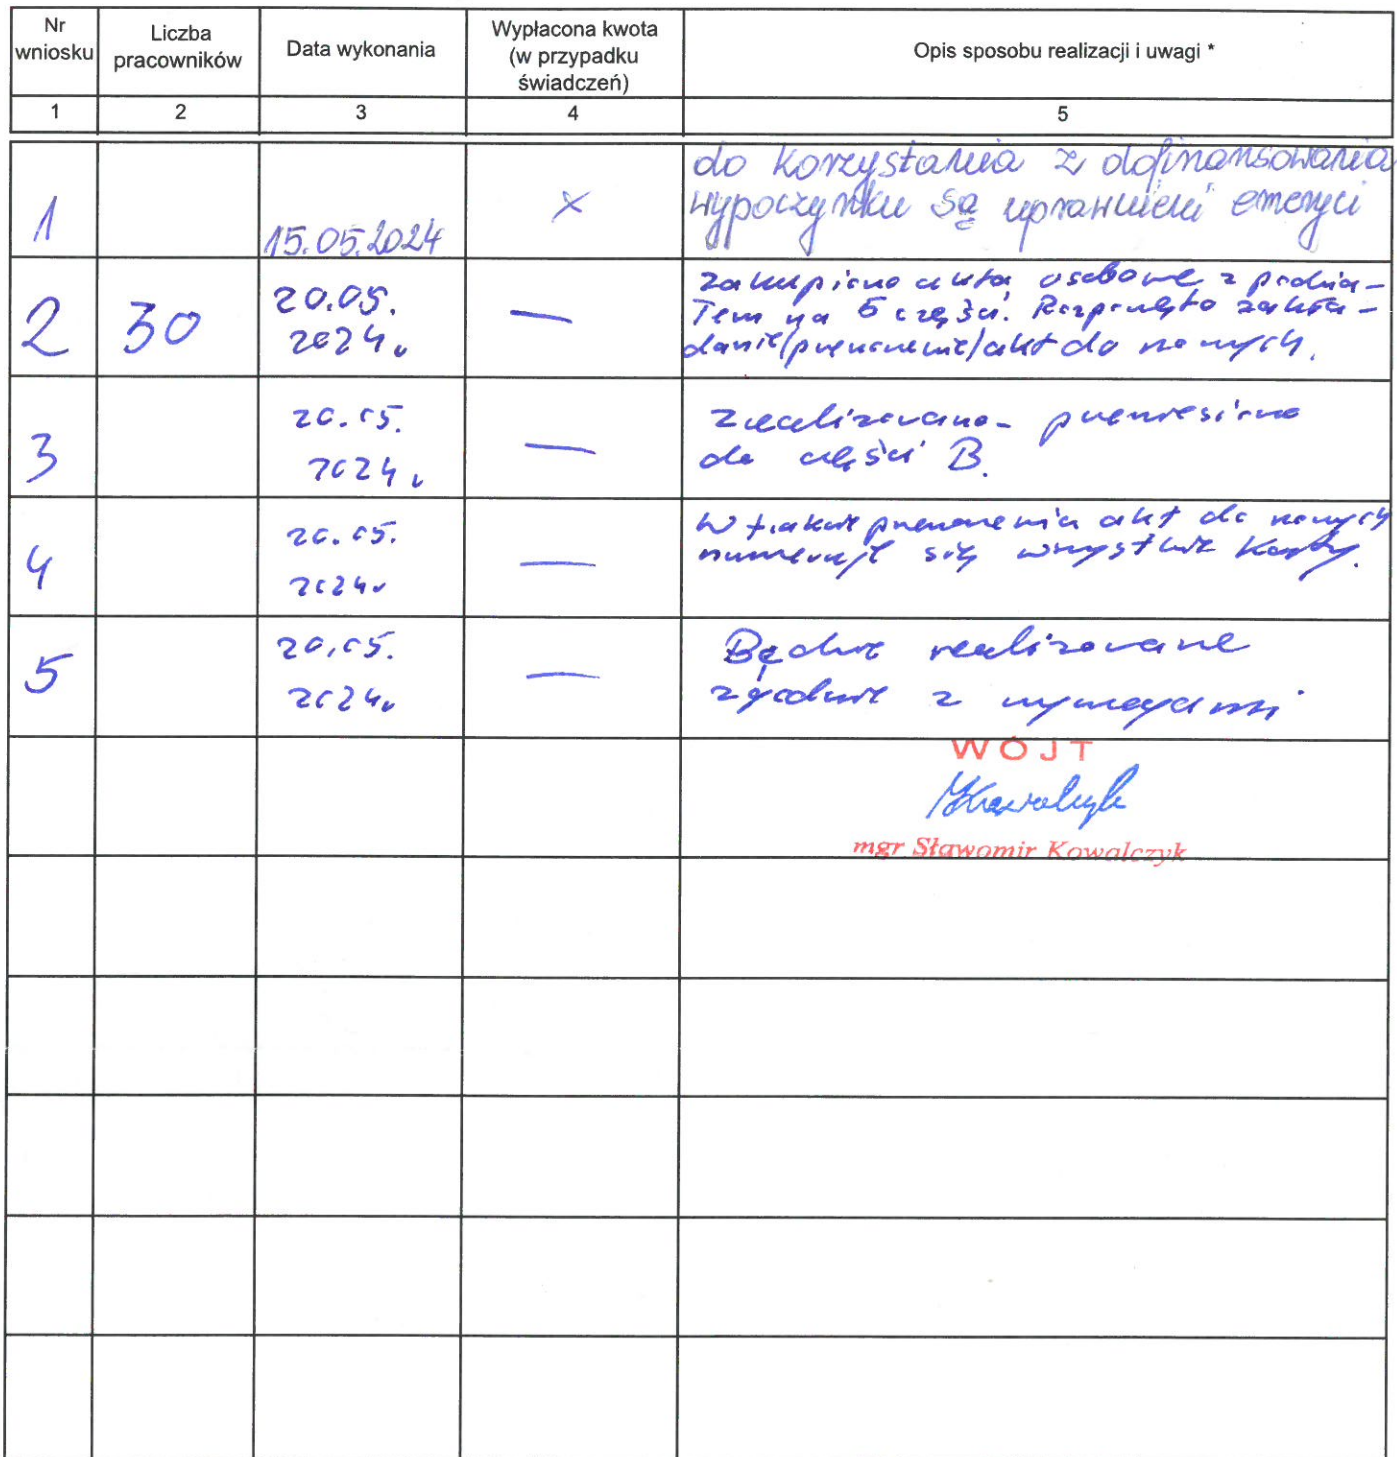 Nr wniosku
Liczba pracowników
Data wykonania
Wypłacona kwota (w przypadku świadczeń)
Opis sposobu realizacji i uwagi *
1 2 3 4 5
1 15.05.2024 ×
do korzystania z dofinansowania
wypoczynku są uprawnieni emeryci
2 30 20.05. 2024r —
Zakupiono akta osobowe z podzia-
łem na 5 części. Rozpoczęto zakła-
danie/przenoszenie/akt do nowych.
3 20.05. 2024r —
Zrealizowano - przeniesiono
do części B.
4 20.05. 2024r —
W trakcie przenoszenia akt do nowych
numeruje się wszystkie karty.
5 20.05. 2024r —
Będzie realizowane
zgodnie z wymogami
WÓJT
mgr Sławomir Kowalczyk